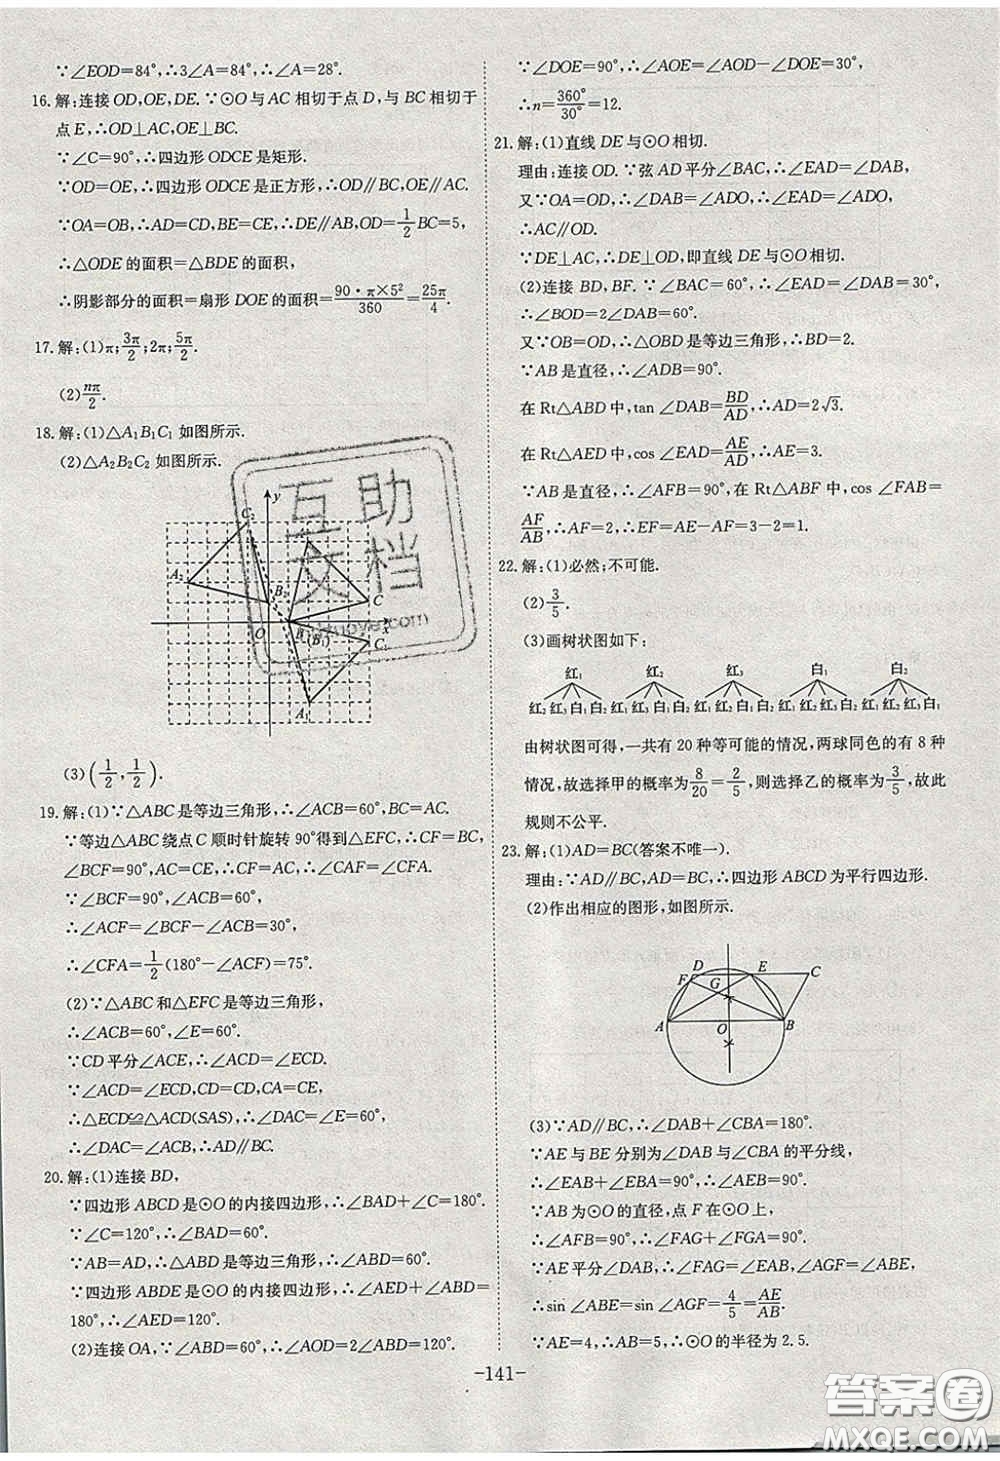 ∵∠EOD=84°,∴3∠A=84°,∴∠A=28°.
16.解:连接OD,OE,DE.∵⊙O与AC相切于点D,与BC相切于
点E,∴OD⊥AC,OE⊥BC.
∵∠C=90°,∴四边形ODCE是矩形.
∵OD=OE,∴四边形ODCE是正方形,∴OD∥BC,OE∥AC.
∵OA=OB,∴AD=CD,BE=CE,∴DE∥AB,OD=1/2BC=5,
∴△ODE的面积=△BDE的面积,
∴阴影部分的面积=扇形DOE的面积=90·π×5²/360=25π/4.
17.解:(1)π;3π/2;2π;5π/2.
(2)nπ/2.
18.解:(1)△A₁B₁C₁如图所示.
(2)△A₂B₂C₂如图所示.
y
C₂
A₂
B₂
C
O
B
(B₁)
x
C₁
A₁
互助
文档
(3)(1/2,1/2).
19.解:(1)∵△ABC是等边三角形,∴∠ACB=60°,BC=AC.
∵等边△ABC绕点C顺时针旋转90°得到△EFC,∴CF=BC,
∠BCF=90°,AC=CE,∴CF=AC,∴∠CAF=∠CFA.
∵∠BCF=90°,∠ACB=60°,
∴∠ACF=∠BCF-∠ACB=30°,
∴∠CFA=1/2(180°-∠ACF)=75°.
(2)∵△ABC和△EFC是等边三角形,
∴∠ACB=60°,∠E=60°.
∵CD平分∠ACE,∴∠ACD=∠ECD.
∵∠ACD=∠ECD,CD=CD,CA=CE,
∴△ECD≌△ACD(SAS),∴∠DAC=∠E=60°,
∴∠DAC=∠ACB,∴AD∥BC.
20.解:(1)连接BD,
∵四边形ABCD是⊙O的内接四边形,∴∠BAD+∠C=180°.
∵∠C=120°,∴∠BAD=60°.
∵AB=AD,∴△ABD是等边三角形,∴∠ABD=60°.
∵四边形ABDE是⊙O的内接四边形,∴∠AED+∠ABD=
180°,∴∠AED=120°.
(2)连接OA,∵∠ABD=60°,∴∠AOD=2∠ABD=120°.
∵∠DOE=90°,∴∠AOE=∠AOD-∠DOE=30°,
∴n=360°/30°=12.
21.解:(1)直线DE与⊙O相切.
理由:连接OD.∵弦AD平分∠BAC,∴∠EAD=∠DAB,
又∵OA=OD,∴∠DAB=∠ADO,∴∠EAD=∠ADO,
∴AC∥OD.
∵DE⊥AC,∴DE⊥OD,即直线DE与⊙O相切.
(2)连接BD,BF.∵∠BAC=60°,∴∠EAD=∠DAB=30°,
∴∠BOD=2∠DAB=60°.
又∵OB=OD,∴△OBD是等边三角形,∴BD=2.
∵AB是直径,∴∠ADB=90°.
在Rt△ABD中,tan∠DAB=BD/AD,∴AD=2√3.
在Rt△AED中,cos∠EAD=AE/AD,∴AE=3.
∵AB是直径,∴∠AFB=90°,在Rt△ABF中,cos∠FAB=
AF/AB,∴AF=2,∴EF=AE-AF=3-2=1.
22.解:(1)必然;不可能.
(2)3/5.
(3)画树状图如下:
红₁ 红₂ 红₃ 白₁ 白₂
红₂红₃白₁白₂ 红₁红₃白₁白₂ 红₁红₂白₁白₂ 红₁红₂红₃白₂ 红₁红₂红₃白₁
由树状图可得,一共有20种等可能的情况,两球同色的有8种
情况,故选择甲的概率为8/20=2/5,则选择乙的概率为3/5,故此
规则不公平.
23.解:(1)AD=BC(答案不唯一).
理由:∵AD∥BC,AD=BC,∴四边形ABCD为平行四边形.
(2)作出相应的图形,如图所示.
D
E
C
F
G
A
O
B
(3)∵AD∥BC,∴∠DAB+∠CBA=180°.
∵AE与BE分别为∠DAB与∠CBA的平分线,
∴∠EAB+∠EBA=90°,∴∠AEB=90°.
∵AB为⊙O的直径,点F在⊙O上,
∴∠AFB=90°,∴∠FAG+∠FGA=90°.
∵AE平分∠DAB,∴∠FAG=∠EAB,∴∠AGF=∠ABE,
∴sin∠ABE=sin∠AGF=4/5=AE/AB.
∵AE=4,∴AB=5,∴⊙O的半径为2.5.
-141-
答案圈
MXQE.COM